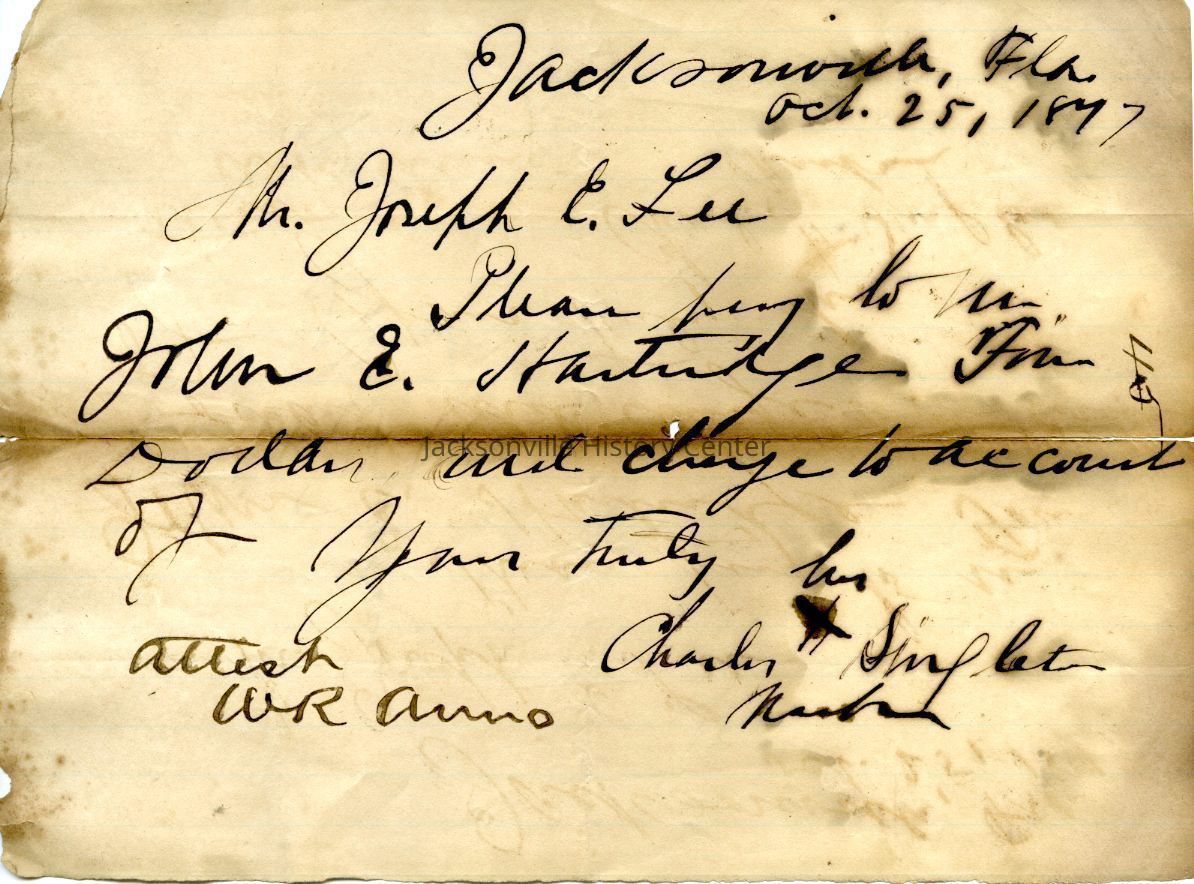 Jacksonville, Fla.
Oct. 25, 1877
Mr. Joseph E. Lee
Please pay to Mr
John E. Hartridge Four
Dollars and charge to account
of
Yours truly
his
Charles X Singleton
mark
attest
WR Anno
Jacksonville History Center